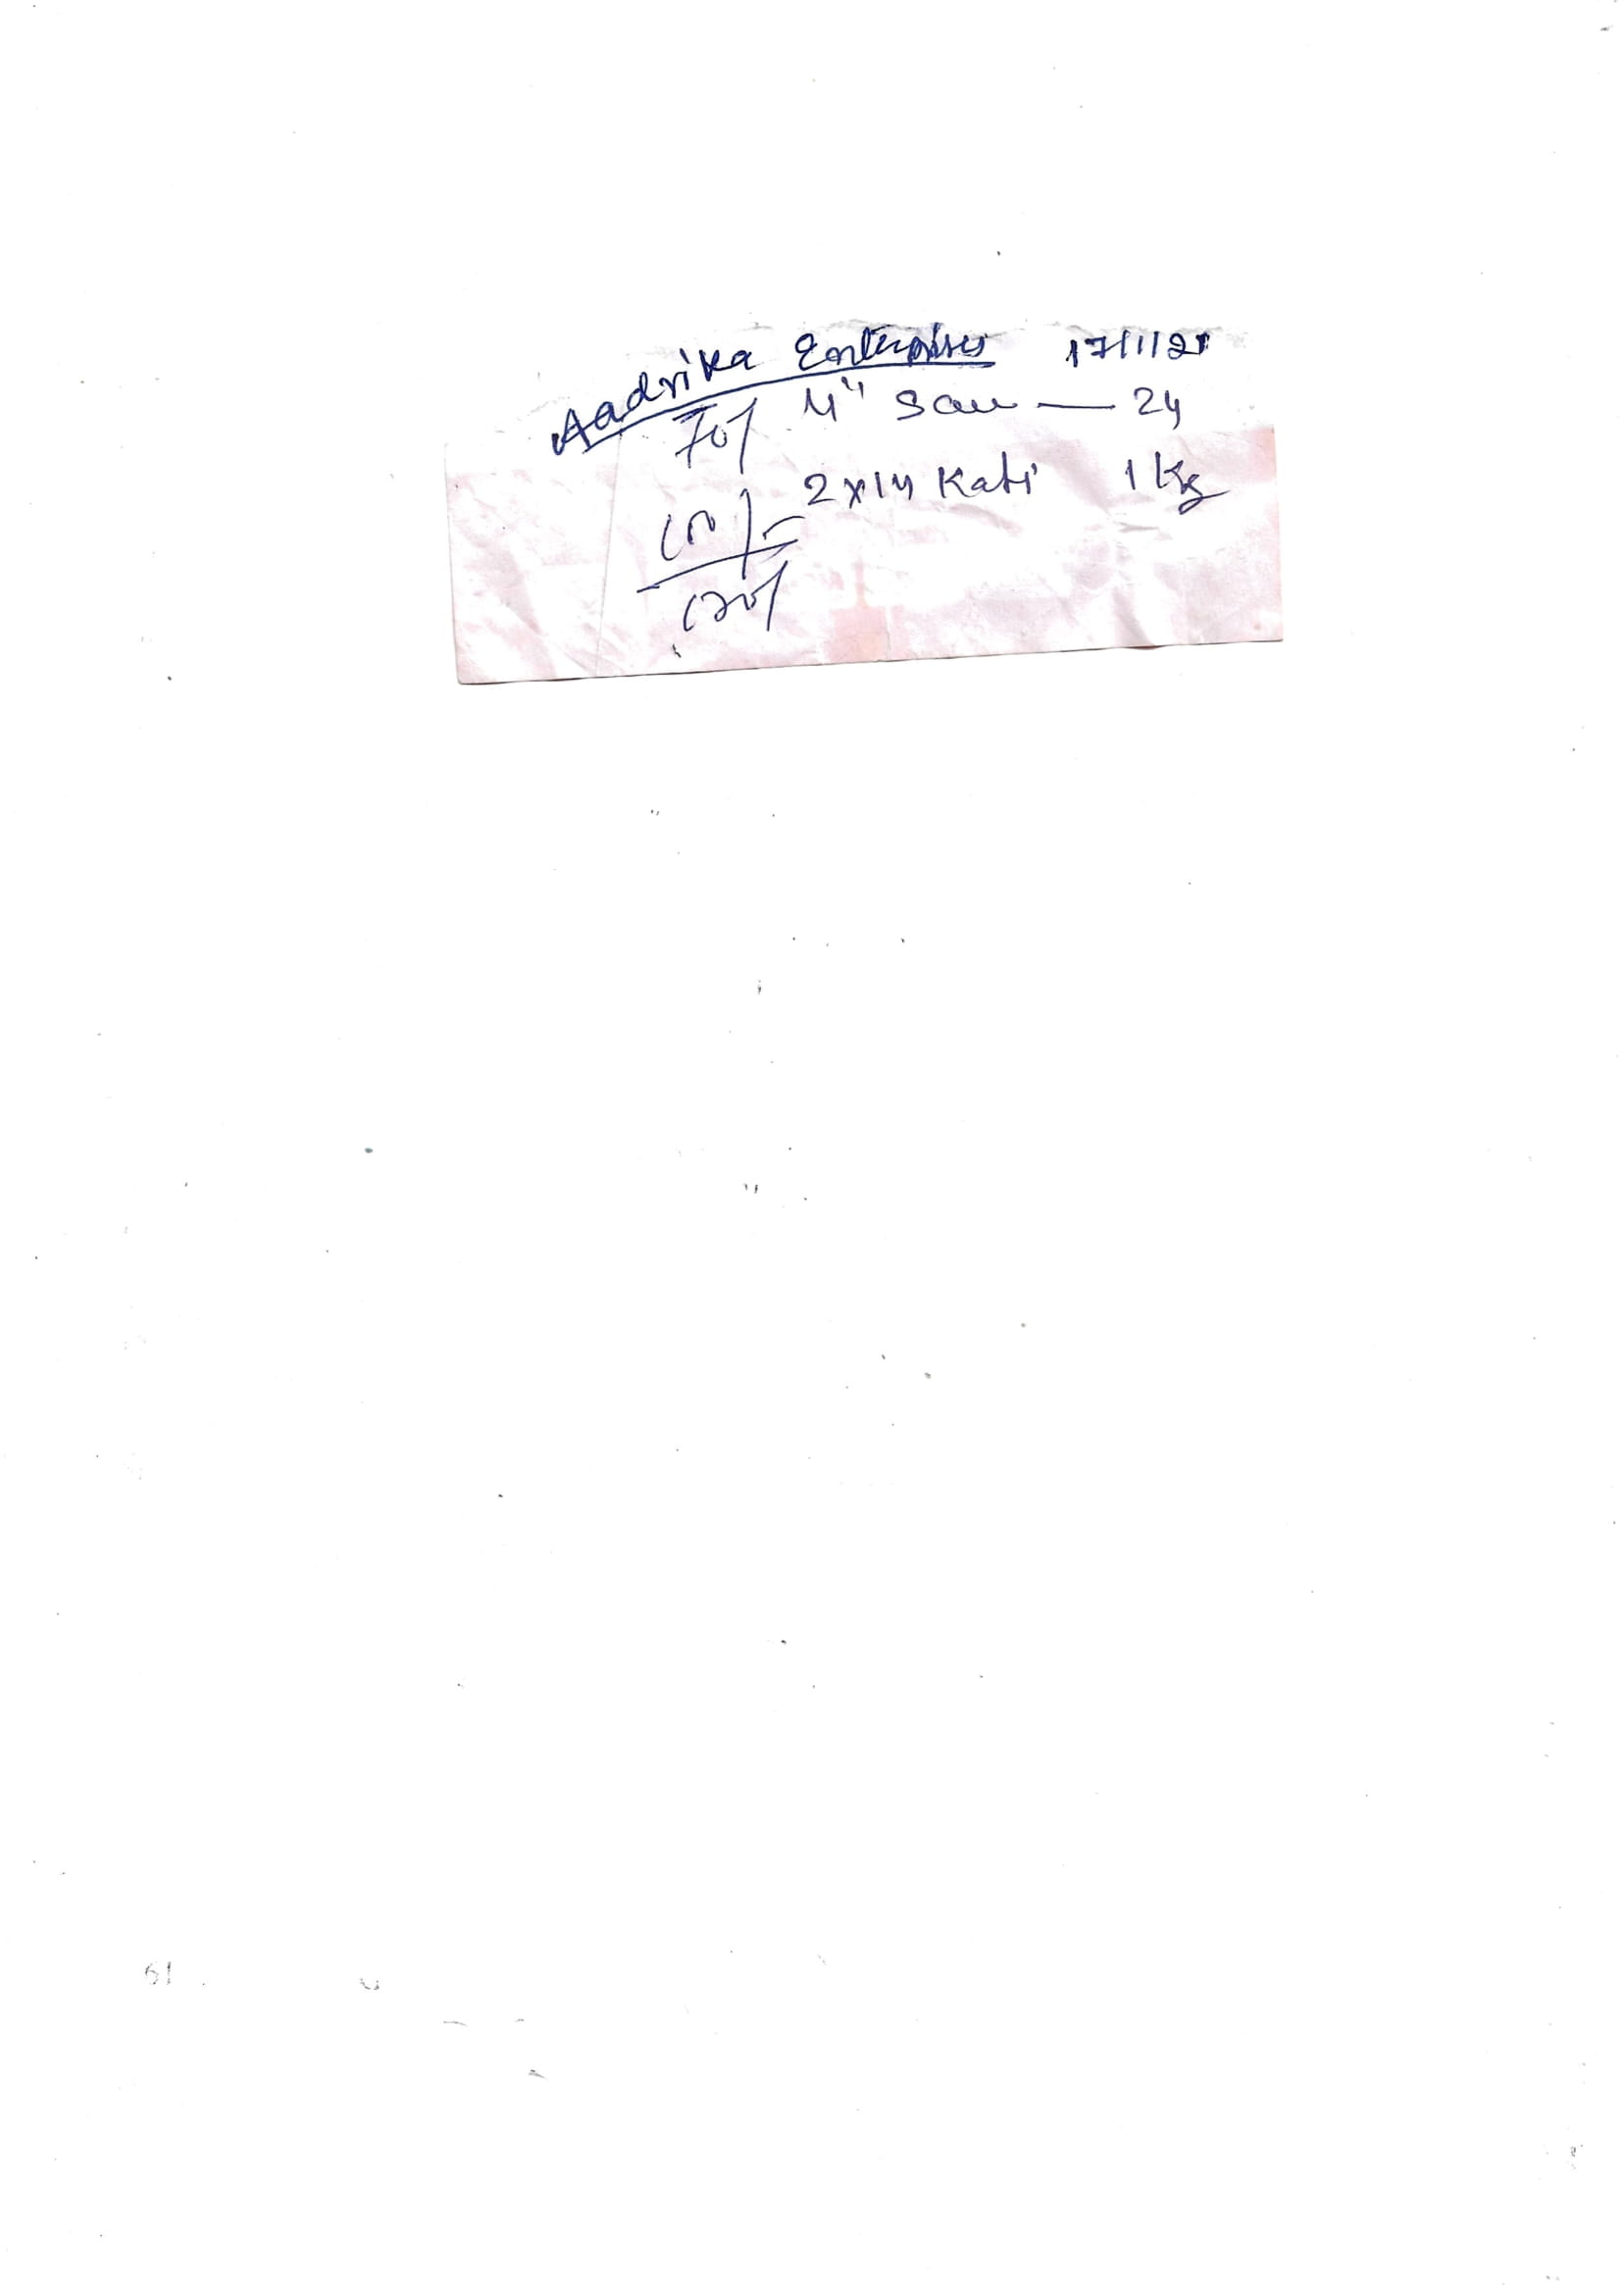 Aadrika Enterprises 17/1/21
70/ 4" Sau — 24
2x14 Kati 1 Kg